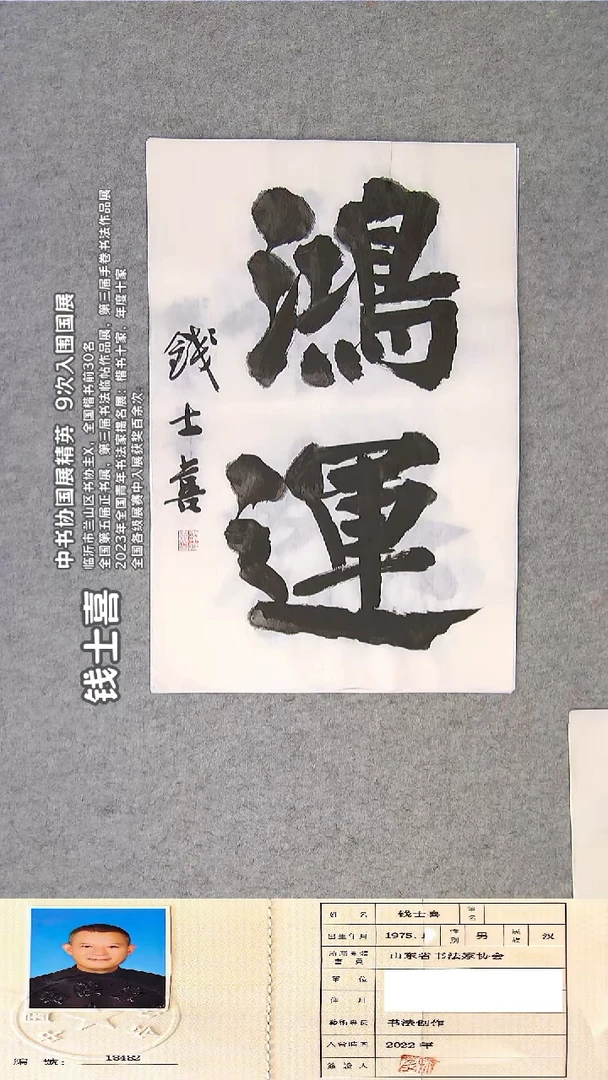 鴻運
錢士喜
钱士喜
中书协国展精英 9次入围国展
临沂市兰山区书协主X，全国楷书前30名
全国第五届正书展、第三届书法临帖作品展、第三届手卷书法作品展
2023年全国青年书法家提名展：楷书十家，年度十家
全国各级展赛中入展获奖百余次
姓 名 钱士喜
出生年月 1975.1 性别 男 民族 汉
山东省书法家协会
单 位
书法创作
2022 年
编 號： 18482